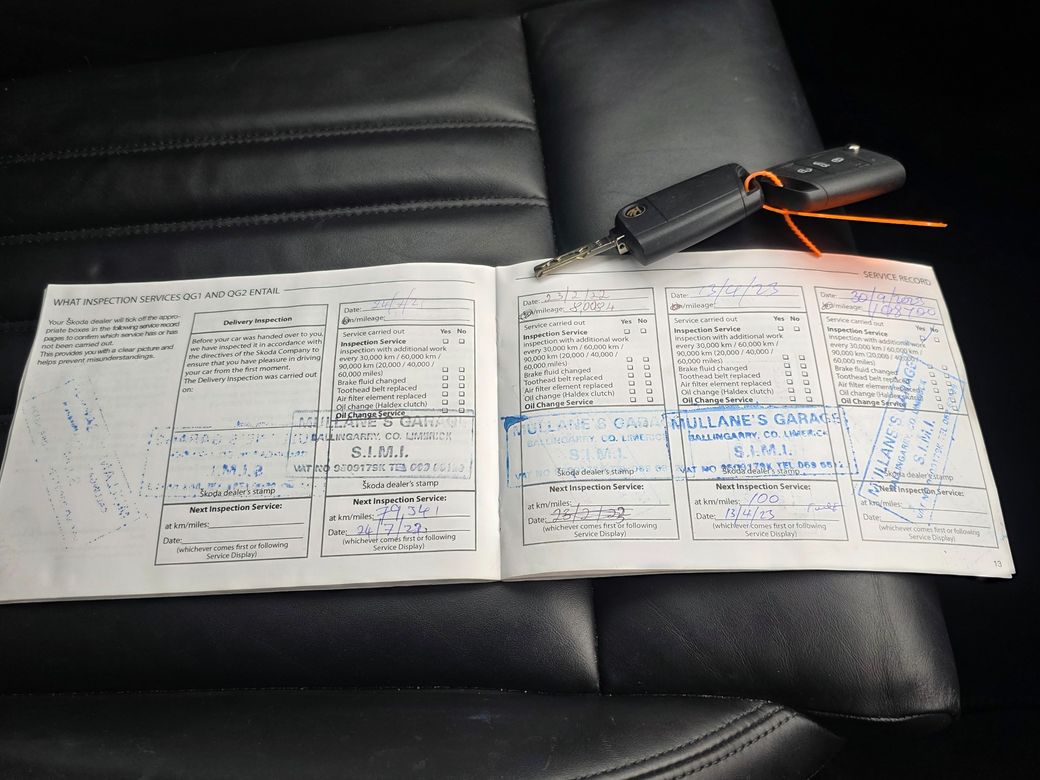 WHAT INSPECTION SERVICES QG1 AND QG2 ENTAIL
Your Škoda dealer will tick off the appro-
priate boxes in the following service record
pages to confirm which service has or has
not been carried out.
This provides you with a clear picture and
helps prevent misunderstandings.
Delivery Inspection
Before your car was handed over to you,
we have inspected it in accordance with
the directives of the Skoda Company to
ensure that you have pleasure in driving
your car from the first moment.
The Delivery Inspection was carried out
on:
S.I.M.I.
Škoda dealer's stamp
Next Inspection Service:
at km/miles:
Date:
(whichever comes first or following
Service Display)
Date:
km/mileage:
Service carried out Yes No
Inspection Service
inspection with additional work
every 30,000 km / 60,000 km /
90,000 km (20,000 / 40,000 /
60,000 miles)
Brake fluid changed
Toothead belt replaced
Air filter element replaced
Oil change (Haldex clutch)
Oil Change Service
MULLANE'S GARAGE
BALLINGARRY, CO. LIMERICK
S.I.M.I.
VAT NO 9509179K TEL 069
Škoda dealer's stamp
Next Inspection Service:
at km/miles: 79341
Date: 24/7/22
(whichever comes first or following
Service Display)
SERVICE RECORD
Date: 23/2/22
km/mileage: 80084
Service carried out Yes No
Inspection Service
inspection with additional work
every 30,000 km / 60,000 km /
90,000 km (20,000 / 40,000 /
60,000 miles)
Brake fluid changed
Toothead belt replaced
Air filter element replaced
Oil change (Haldex clutch)
Oil Change Service
MULLANE'S GARAGE
BALLINGARRY, CO. LIMERICK
S.I.M.I.
Škoda dealer's stamp
Next Inspection Service:
at km/miles:
Date: 23/2/23
(whichever comes first or following
Service Display)
Date: 13/4/23
km/mileage:
Service carried out Yes No
Inspection Service
inspection with additional work
every 30,000 km / 60,000 km /
90,000 km (20,000 / 40,000 /
60,000 miles)
Brake fluid changed
Toothead belt replaced
Air filter element replaced
Oil change (Haldex clutch)
Oil Change Service
MULLANE'S GARAGE
BALLINGARRY, CO. LIMERICK
S.I.M.I.
VAT NO 9509179K TEL 069
Škoda dealer's stamp
Next Inspection Service:
at km/miles: 100
Date: 13/4/23
(whichever comes first or following
Service Display)
Date: 30/9/2023
km/mileage:
Service carried out
Yes No
Inspection Service
inspection with additional work
every 30,000 km / 60,000 km /
90,000 km (20,000 / 40,000 /
60,000 miles)
Brake fluid changed
Toothead belt replaced
Air filter element replaced
Oil change (Haldex clutch)
Oil Change Service
MULLANE'S GARAGE
S.I.M.I.
Škoda dealer's stamp
Next Inspection Service:
at km/miles:
Date:
(whichever comes first or following
Service Display)
13